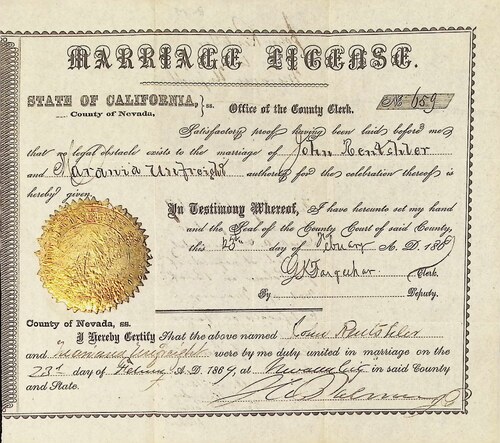 MARRIAGE LICENSE.
STATE OF CALIFORNIA, } ss. Office of the County Clerk. No 659
County of Nevada,
Satisfactory proof having been laid before me
that no legal obstacle exists to the marriage of John Rentshler
and authority for the celebration thereof is
hereby given
In Testimony Whereof, I have hereunto set my hand
and the Seal of the County Court of said County,
this day of February A. D. 186
Clerk.
By Deputy.
County of Nevada, ss.
I Hereby Certify That the above named John Rentshler
and were by me duly united in marriage on the
23rd day of A. D. 1869, at Nevada City in said County
and State.